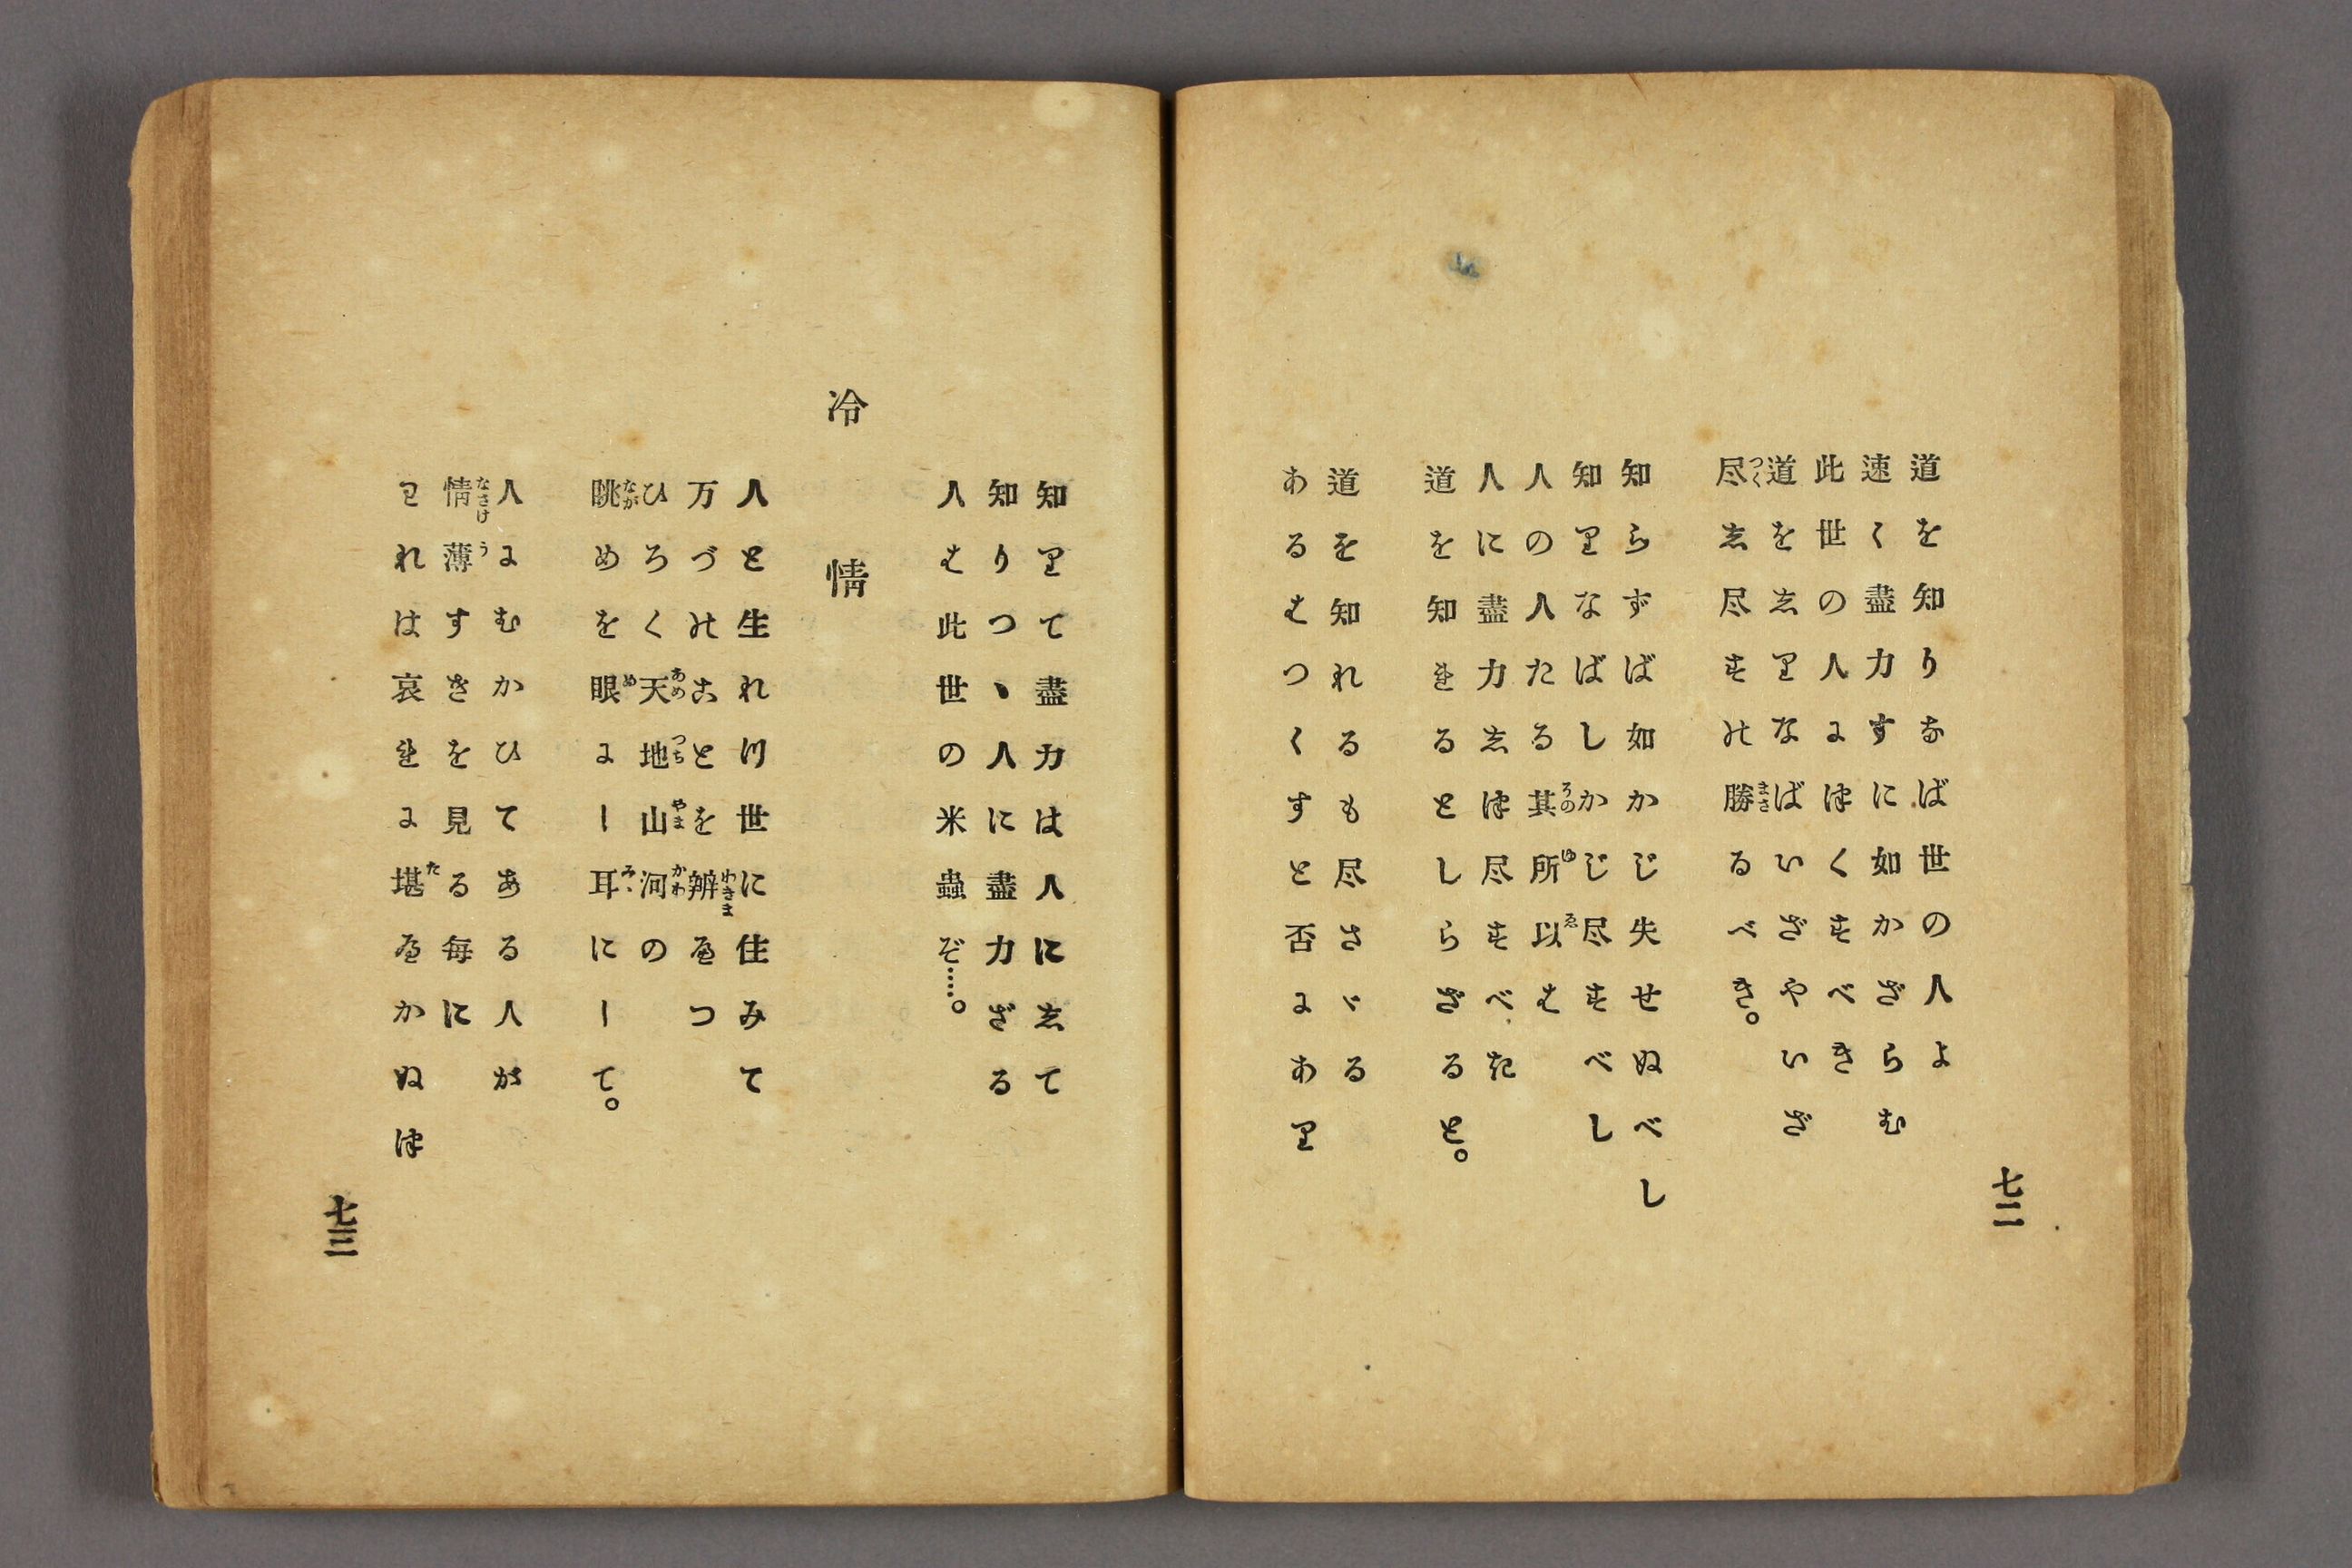 道を知りなば世の人よ
速く盡力すに如かざらむ
此世の人につくすべき
道をしりなばいざやいざ
尽し尽すの勝るべき。
知らずば如かじ失せぬべし
知りなばしかじ尽すべし
人の人たる其所以は
人に盡力しつ尽すべき
道を知れるとしらざると。
道を知れるも尽さゞる
あるはつくすと否にあり
七二
知りて盡力は人にして
知りつゝ人に盡力ざる
人は此世の米蟲ぞ……。
冷情
人と生れつ世に住みて
万づのことを辨へつ
ひろく天地山河の
眺めを眼にし耳にして。
人にむかひてある人が
情薄すきを見る毎に
われは哀れに堪へかぬつ
七三